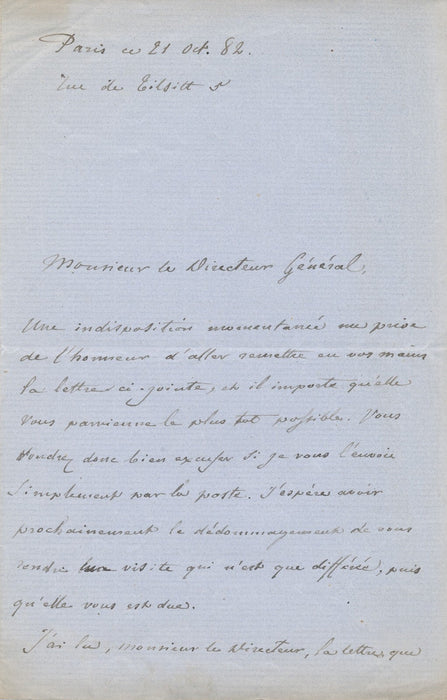 Paris ce 21 Oct. 82.
rue de Tilsitt 5
Monsieur le Directeur Général,
Une indisposition momentanée me prive
de l'honneur d'aller remettre en vos mains
la lettre ci-jointe, et il importe qu'elle
vous parvienne le plus tot possible. Vous
voudrez donc bien excuser si je vous l'envoie
simplement par la poste. J'espère avoir
prochainement le dédommagement de vous
rendre une visite qui n'est que différée, puis
qu'elle vous est due.
J'ai lu, monsieur le Directeur, la lettre que